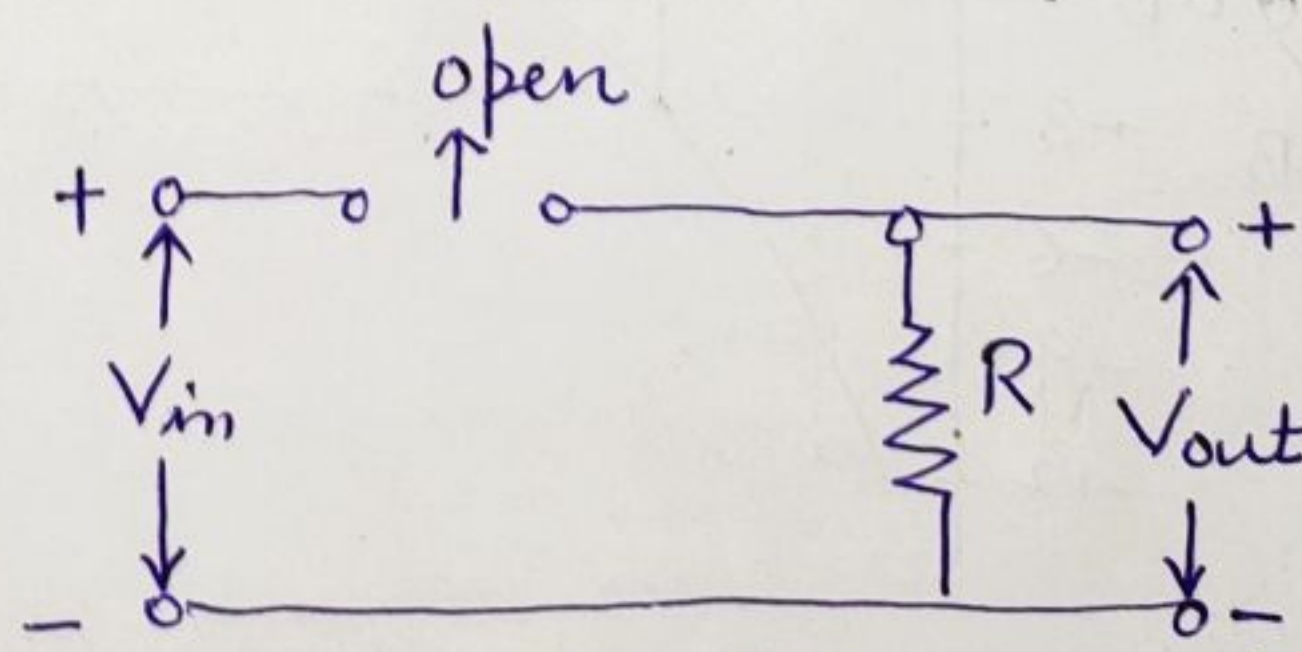 open
+ +
Vin R Vout
- -